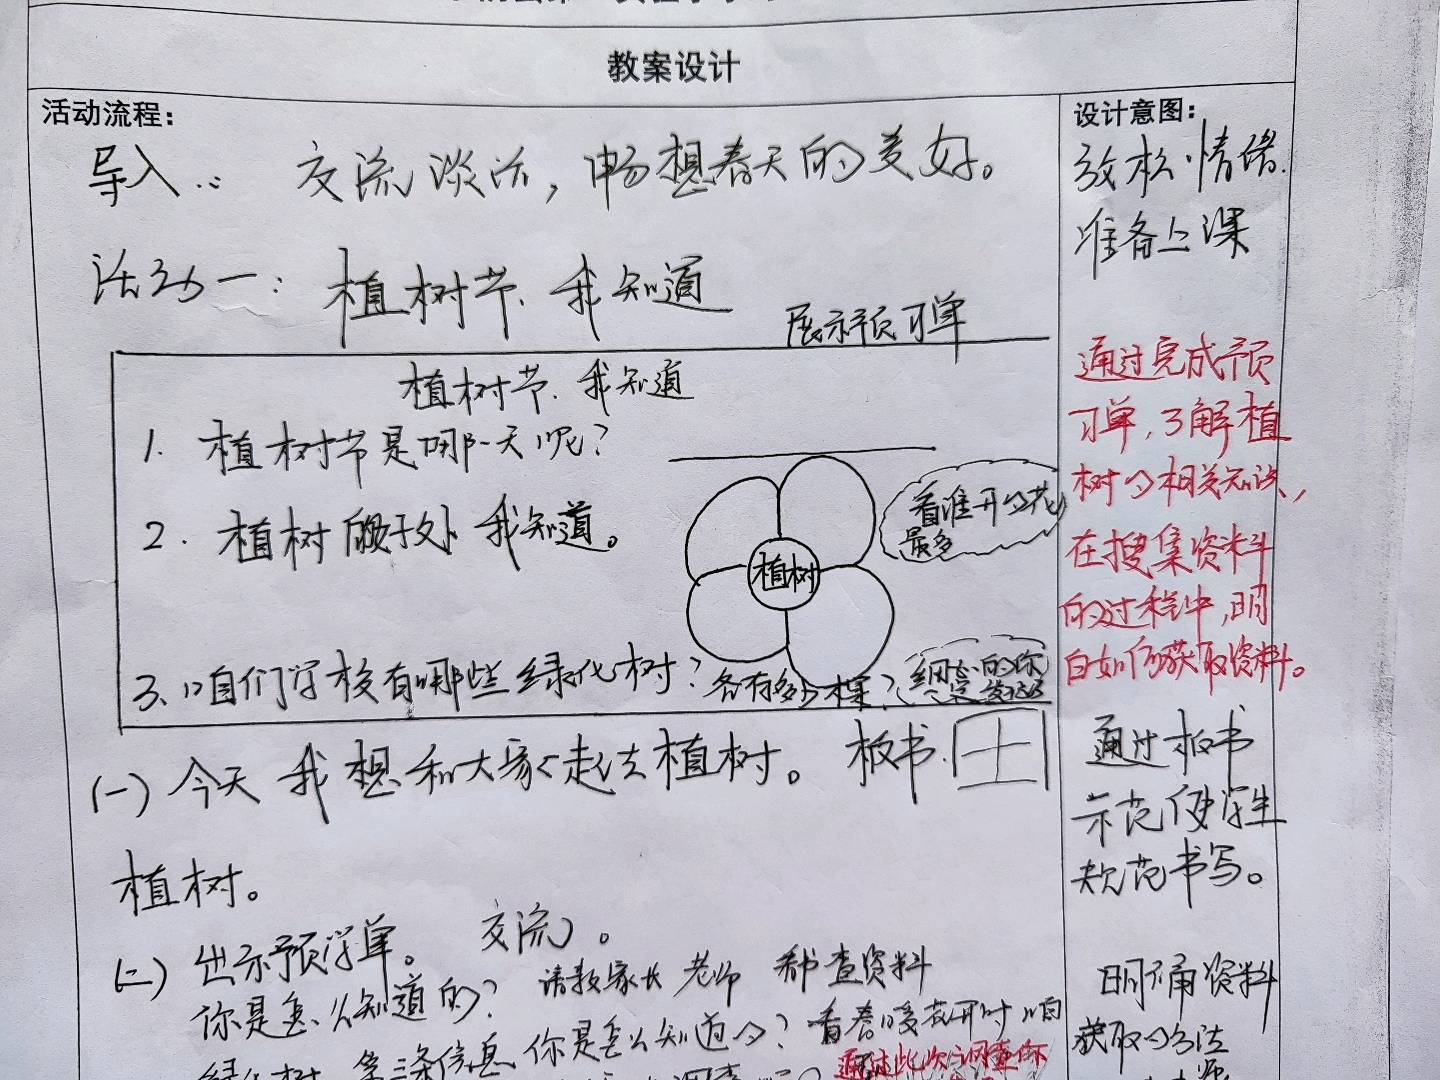 教案设计
活动流程：
导入：交流谈话，畅想春天的美好。
活动一：植树节、我知道
展示预习单
植树节、我知道
1. 植树节是哪一天呢？
2. 植树的好处我知道。
植树
看谁开的花
最多
3、咱们学校有哪些绿化树？各有多少棵？
细心的你
(一) 今天我想和大家一起去植树。板书 土
植树。
(二) 出示预学单。交流。
你是怎么知道的？请教家长 老师 看书 查资料
第三条信息你是怎么知道的？看春暖花开时咱
通过此次调查你
设计意图：
放松情绪
准备上课
通过完成预
习单，了解植
树的相关知识，
在搜集资料
的过程中，明
白如何获取资料。
通过板书
示范使学生
规范书写。
明确资料
获取的方法